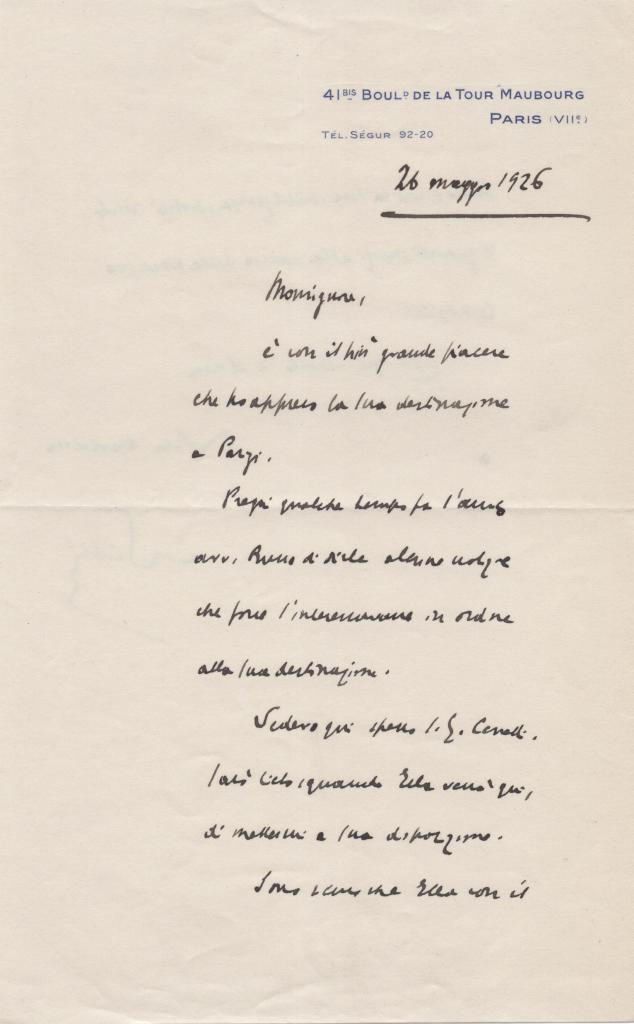 41BIS BOULD DE LA TOUR MAUBOURG
PARIS (VIIE)
TÉL. SÉGUR 92-20
26 maggio 1926
Monsignore,
è con il più grande piacere
che ho appreso la Sua destinazione
a Parigi.
Pregai qualche tempo fa l'amico
avv. Russo di dirle alcune notizie
che forse l'interessavano in ordine
alla Sua destinazione.
Vedevo qui spesso S. E. Cerretti.
Sarò lieto, quando Ella verrà qui,
di mettermi a Sua disposizione.
Sono sicuro che Ella con il